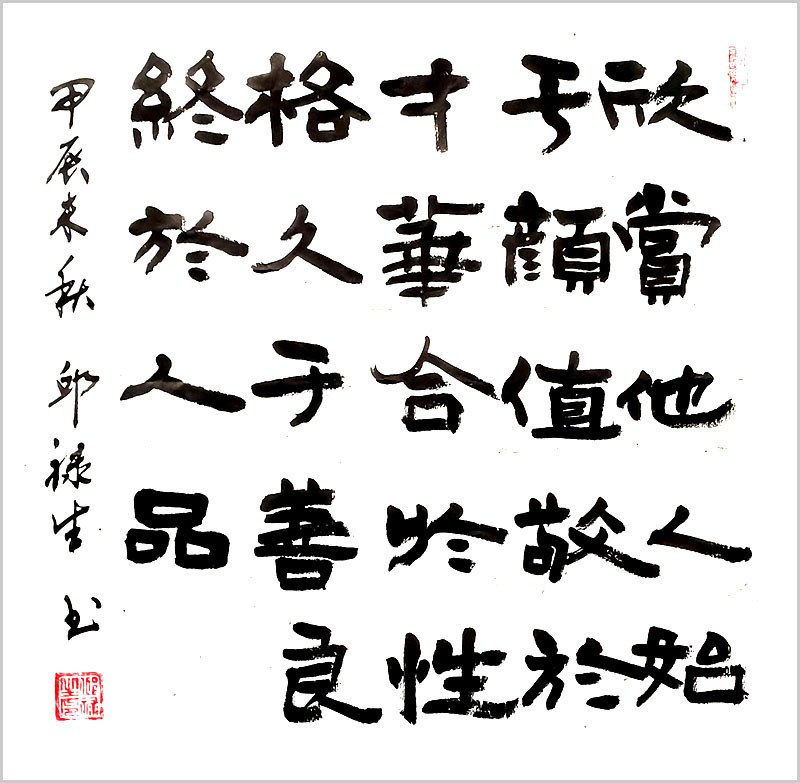 欣賞他人始
于顔值敬於
才華合於性
格久于善良
終於人品
甲辰末秋 邱禄生书